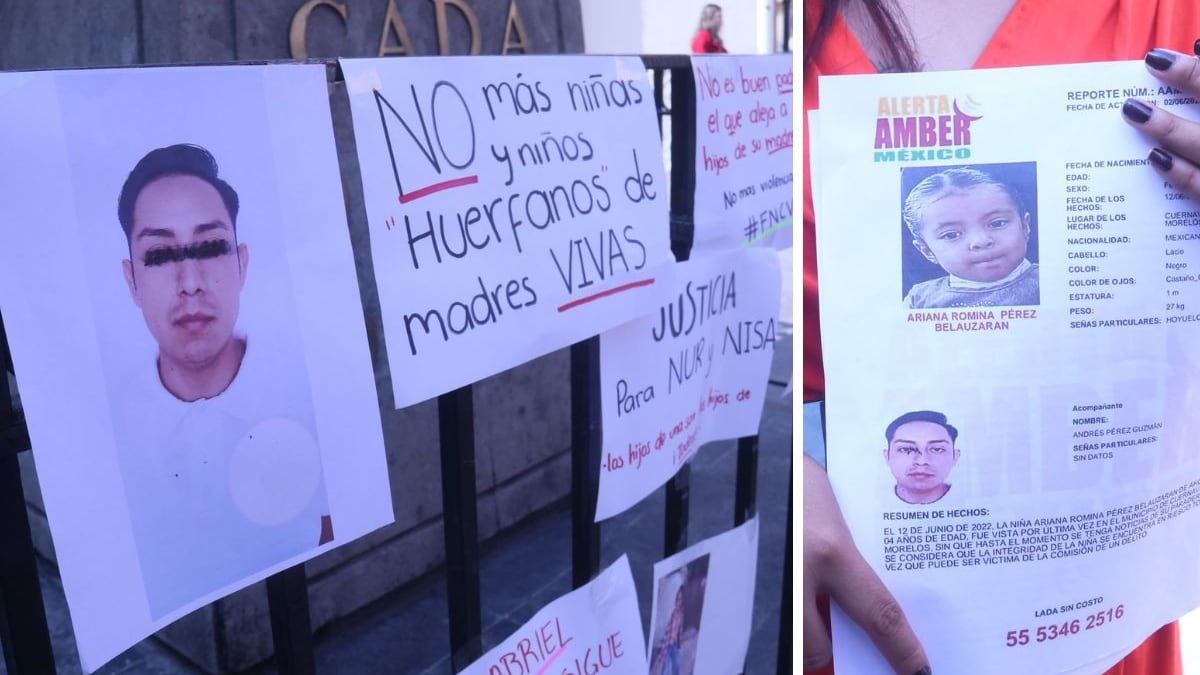 CADA
NO más niñas
y niños
"Huerfanos" de
madres VIVAS
No es buen
el que aleja a
hijos de su madre
No mas violencia
JUSTICIA
Para NUR y NISA
los hijos de una son hijos de
GABRIEL
SIGUE
ALERTA
AMBER
MÉXICO
REPORTE NÚM.:
FECHA DE
ARIANA ROMINA PÉREZ
BELAUZARAN
FECHA DE NACIMIENTO
EDAD:
SEXO:
FECHA DE LOS
HECHOS:
LUGAR DE LOS
HECHOS:
NACIONALIDAD:
CABELLO: Lacio
COLOR: Negro
COLOR DE OJOS:
ESTATURA: 1 m
PESO: 27 kg
SEÑAS PARTICULARES:
Acompañante
NOMBRE:
ANDRÉS PÉREZ GUZMÁN
SEÑAS PARTICULARES:
SIN DATOS
RESUMEN DE HECHOS:
EL 12 DE JUNIO DE 2022, LA NIÑA ARIANA ROMINA PÉREZ BELAUZARAN DE
04 AÑOS DE EDAD, FUE VISTA POR ÚLTIMA VEZ EN EL MUNICIPIO DE
MORELOS, SIN QUE HASTA EL MOMENTO SE TENGA NOTICIAS DE SU
SE CONSIDERA QUE LA INTEGRIDAD DE LA NIÑA SE ENCUENTRA EN RIESGO
VEZ QUE PUEDE SER VICTIMA DE LA COMISIÓN DE UN DELITO.
LADA SIN COSTO
55 5346 2516